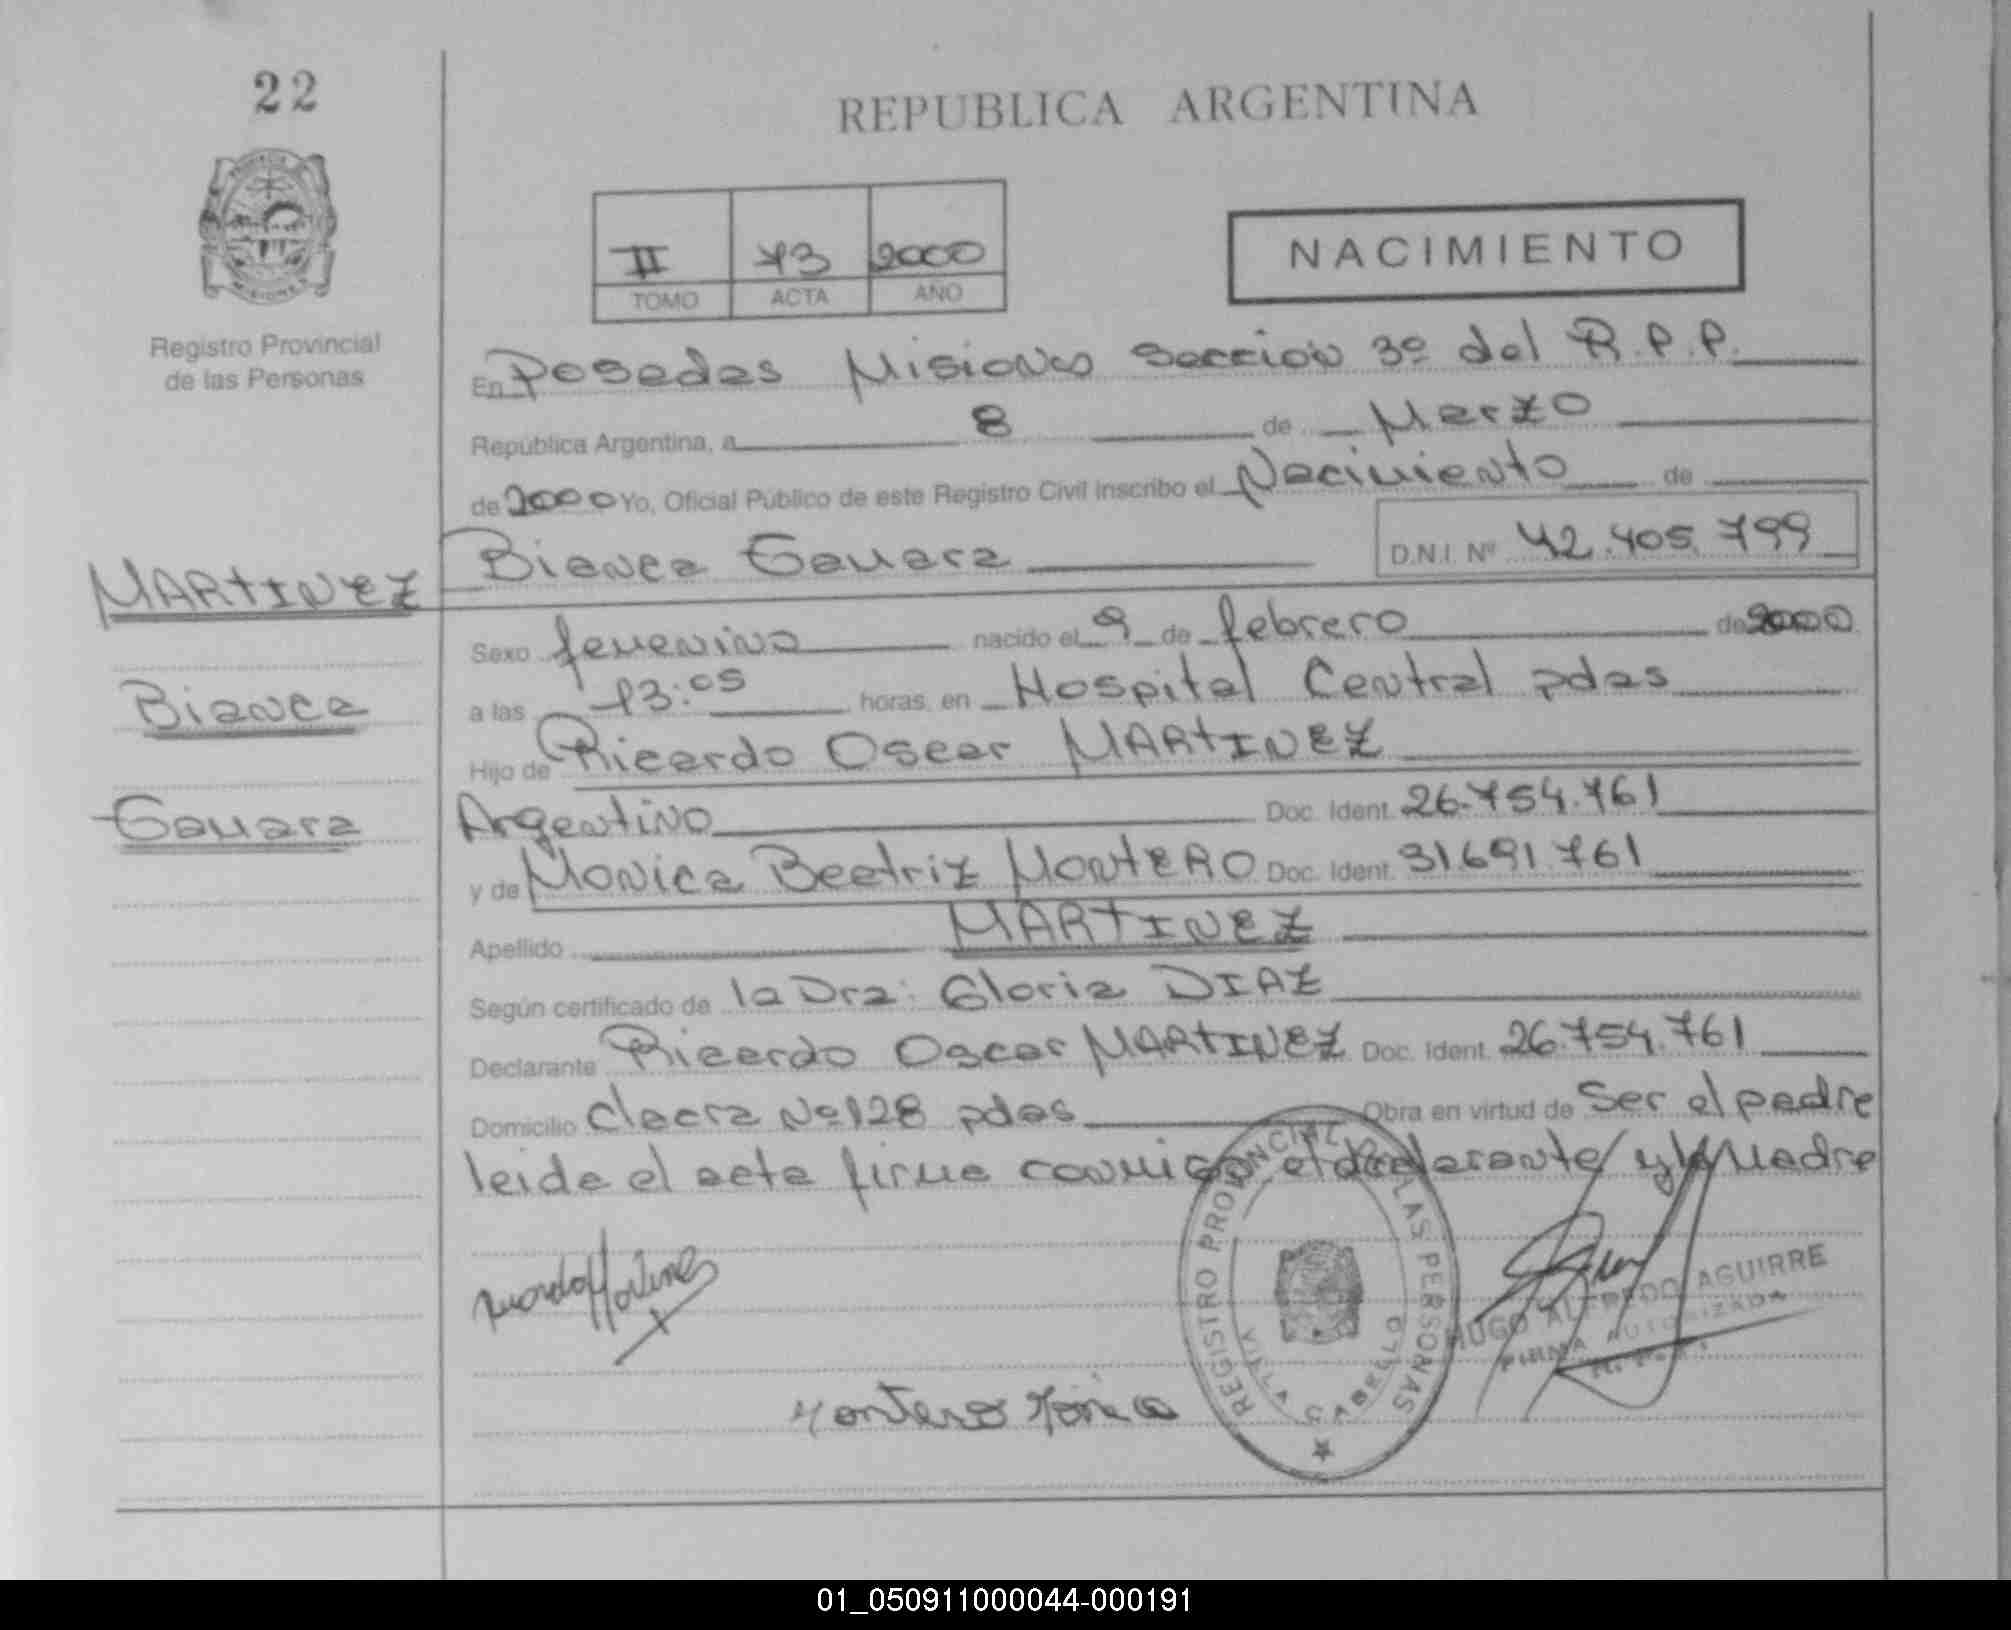 22
REPUBLICA ARGENTINA
PROVINCIA
MISIONES
Registro Provincial
de las Personas
II 73 2000
TOMO ACTA AÑO
NACIMIENTO
En Posadas Misiones Sección 3º del R.P.P.
República Argentina, a 8 de Marzo
de 2000 Yo, Oficial Público de este Registro Civil inscribo el Nacimiento de
MARTINEZ
Bianca
Bianca D.N.I. Nº 42.405.799
Sexo femenino nacido el 9 de febrero de 2000
a las 13:05 horas, en Hospital Central pdas
Hijo de Ricardo Oscar MARTINEZ
Argentino Doc. Ident. 26.754.761
y de Monica Beatriz MONTERO Doc. Ident. 31691.761
Apellido MARTINEZ
Según certificado de la Dra: Gloria DIAZ
Declarante Ricardo Oscar MARTINEZ Doc. Ident. 26.754.761
Domicilio Chacra Nº128 pdas Obra en virtud de Ser el padre
leida el acta firma conmigo el declarante y la Madre
Montero Mónica
REGISTRO PROVINCIAL DE LAS PERSONAS
VILLA CABELLO
HUGO ALFREDO AGUIRRE
FIRMA AUTORIZADA
01_050911000044-000191